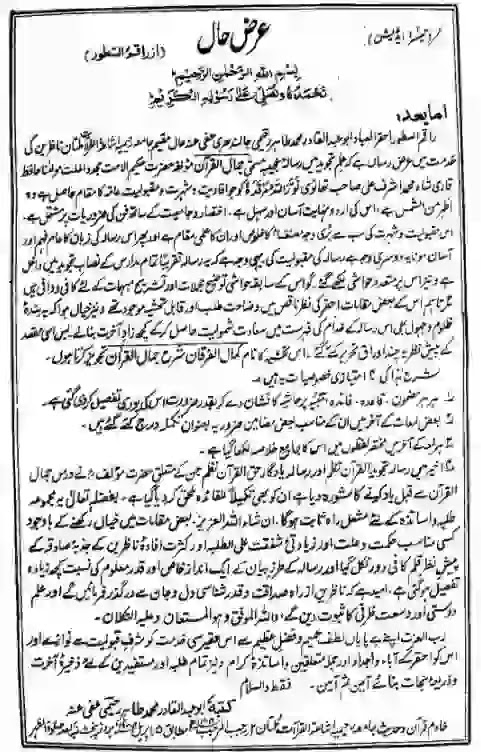 عرض حال
(طبع ثانی ایڈیشن)
(از راقم السطور)
بِسْمِ اللهِ الرَّحْمٰنِ الرَّحِيْمِ
نَحْمَدُهٗ وَنُصَلِّيْ عَلٰى رَسُوْلِهِ الْكَرِيْمِ
اما بعد:
راقم السطور احقر العباد ابو عبد القادر محمد طاہر رحیمی جالندھری عفی عنہ مقیم جامعہ ملتان ناظرین کی
خدمت میں عرض رساں ہے کہ علم تجوید میں رسالہ عجیبہ مسمّٰی جمال القرآن مؤلفہ حضرت حکیم الامت مجدد الملت مولانا حافظ
قاری شاہ محمد اشرف علی صاحب تھانوی نور اللہ مرقدہ کو جو افادیت و شہرت و مقبولیت عامہ کا مقام حاصل ہے وہ
اظہر من الشمس ہے، اس کی اردو نہایت آسان اور سہل ہے۔ اختصار و جامعیت کے ساتھ فن کی ضروریات پر مشتمل ہے۔
اس مقبولیت و شہرت کی سب سے بڑی وجہ مصنف کا خلوص اور ان کا علمی مقام ہے اور پھر اس رسالہ کی زبان کا عام فہم اور
آسان ہونا ہے دوسری وجہ ہے رسالہ کی مقبولیت کی یہی وجہ ہے کہ یہ رسالہ تقریباً تمام مدارس کے نصاب تجوید میں داخل
ہے ونیز اس پر متعدد حواشی لکھے گئے گو اس کے سابقہ حواشی توضیح مجملات اور تشریح مبہمات کے لئے کافی وافی ہیں
تاہم اس کے بعض مقامات احقر کی نظر ناقص میں وضاحت طلب اور قابل تحشیہ موجود تھے ونیز خیال ہوا کہ یہ بندۂ
ظلوم و جہول بھی اس رسالہ کے خدام کی فہرست میں سعادت شمولیت حاصل کر کے کچھ زاد آخرت بنالے بس اسی مقصد
کے پیش نظر یہ چند اوراق تحریر کئے گئے۔ اس تحشیہ کا نام کمال الفرقان شرح جمال القرآن تجویز کرتا ہوں۔
شرح ہذا کی ۴ امتیازی خصوصیات ہیں۔
۱۔ ہر ہر مضمون۔ قاعدہ۔ فائدہ، تنبیہ پر حاشیہ کا نشان دے کر بقدر ضرورت اس کی پوری تفصیل کر دی گئی ہے۔
۲۔ بعض لمعات کے آخر میں ان کے مناسب بعض مضامین ضروریہ بعنوان تکملہ درج کئے گئے ہیں۔
۳۔ ہر لمعہ کے آخر میں مختصر لفظوں میں اس کا جامع خلاصہ لکھا گیا ہے۔
۴۔ اخیر میں رسالہ تجوید القرآن نظم اور رسالہ یادگار حق القرآن نظم جن کے متعلق حضرت مؤلف نے درس جمال
القرآن سے قبل یاد کرنے کا مشورہ دیا ہے ان کو بھی تکمیلاً للفائدہ ملحق کر دیا گیا ہے۔ بفضلہ تعالیٰ یہ مجموعہ
طلبہ و اساتذہ کے لئے مشعل راہ ثابت ہوگا۔ ان شاء اللہ العزیز۔ بعض مقامات میں خیال رکھنے کے باوجود
کسی مناسب حکمت وعلت اور زیادتیٔ شفقت علی الطلبہ اور کثرت افادۂ ناظرین کے جذبۂ صادقہ کے
پیش نظر قلم کافی دور نکل گیا اور رسالہ کے طرز بیان کے ایک انداز خاص اور قدر معلوم کی نسبت کچھ زیادہ
تفصیل ہو گئی ہے۔ امید ہے کہ ناظرین از راہ صداقت و قدر شناسی دل و جان سے درگذر فرمائیں گے اور علم
دوستی اور وسعت ظرفی کا ثبوت دیں گے، واللہ الموفق وھو المستعان وعلیہ التکلان۔
رب العزت اپنے بے پایاں لطف عمیم و فضل عظیم سے اس حقیر سی خدمت کو شرف قبولیت سے نوازے اور
اس کو احقر کے آباء و اجداد اور جملہ متعلقین و اساتذہ کرام و نیز تمام طلبہ اور مستفیدین کے لئے ذخیرۂ آخرت
و ذریعۂ نجات بنائے آمین ثم آمین۔ فقط والسلام
کتبہ ابو عبد القادر محمد طاہر رحیمی عفی عنہ
خادم قرآن و حدیث جامعہ ملتان ۲ رجب المرجب مطابق ۱۵ اپریل